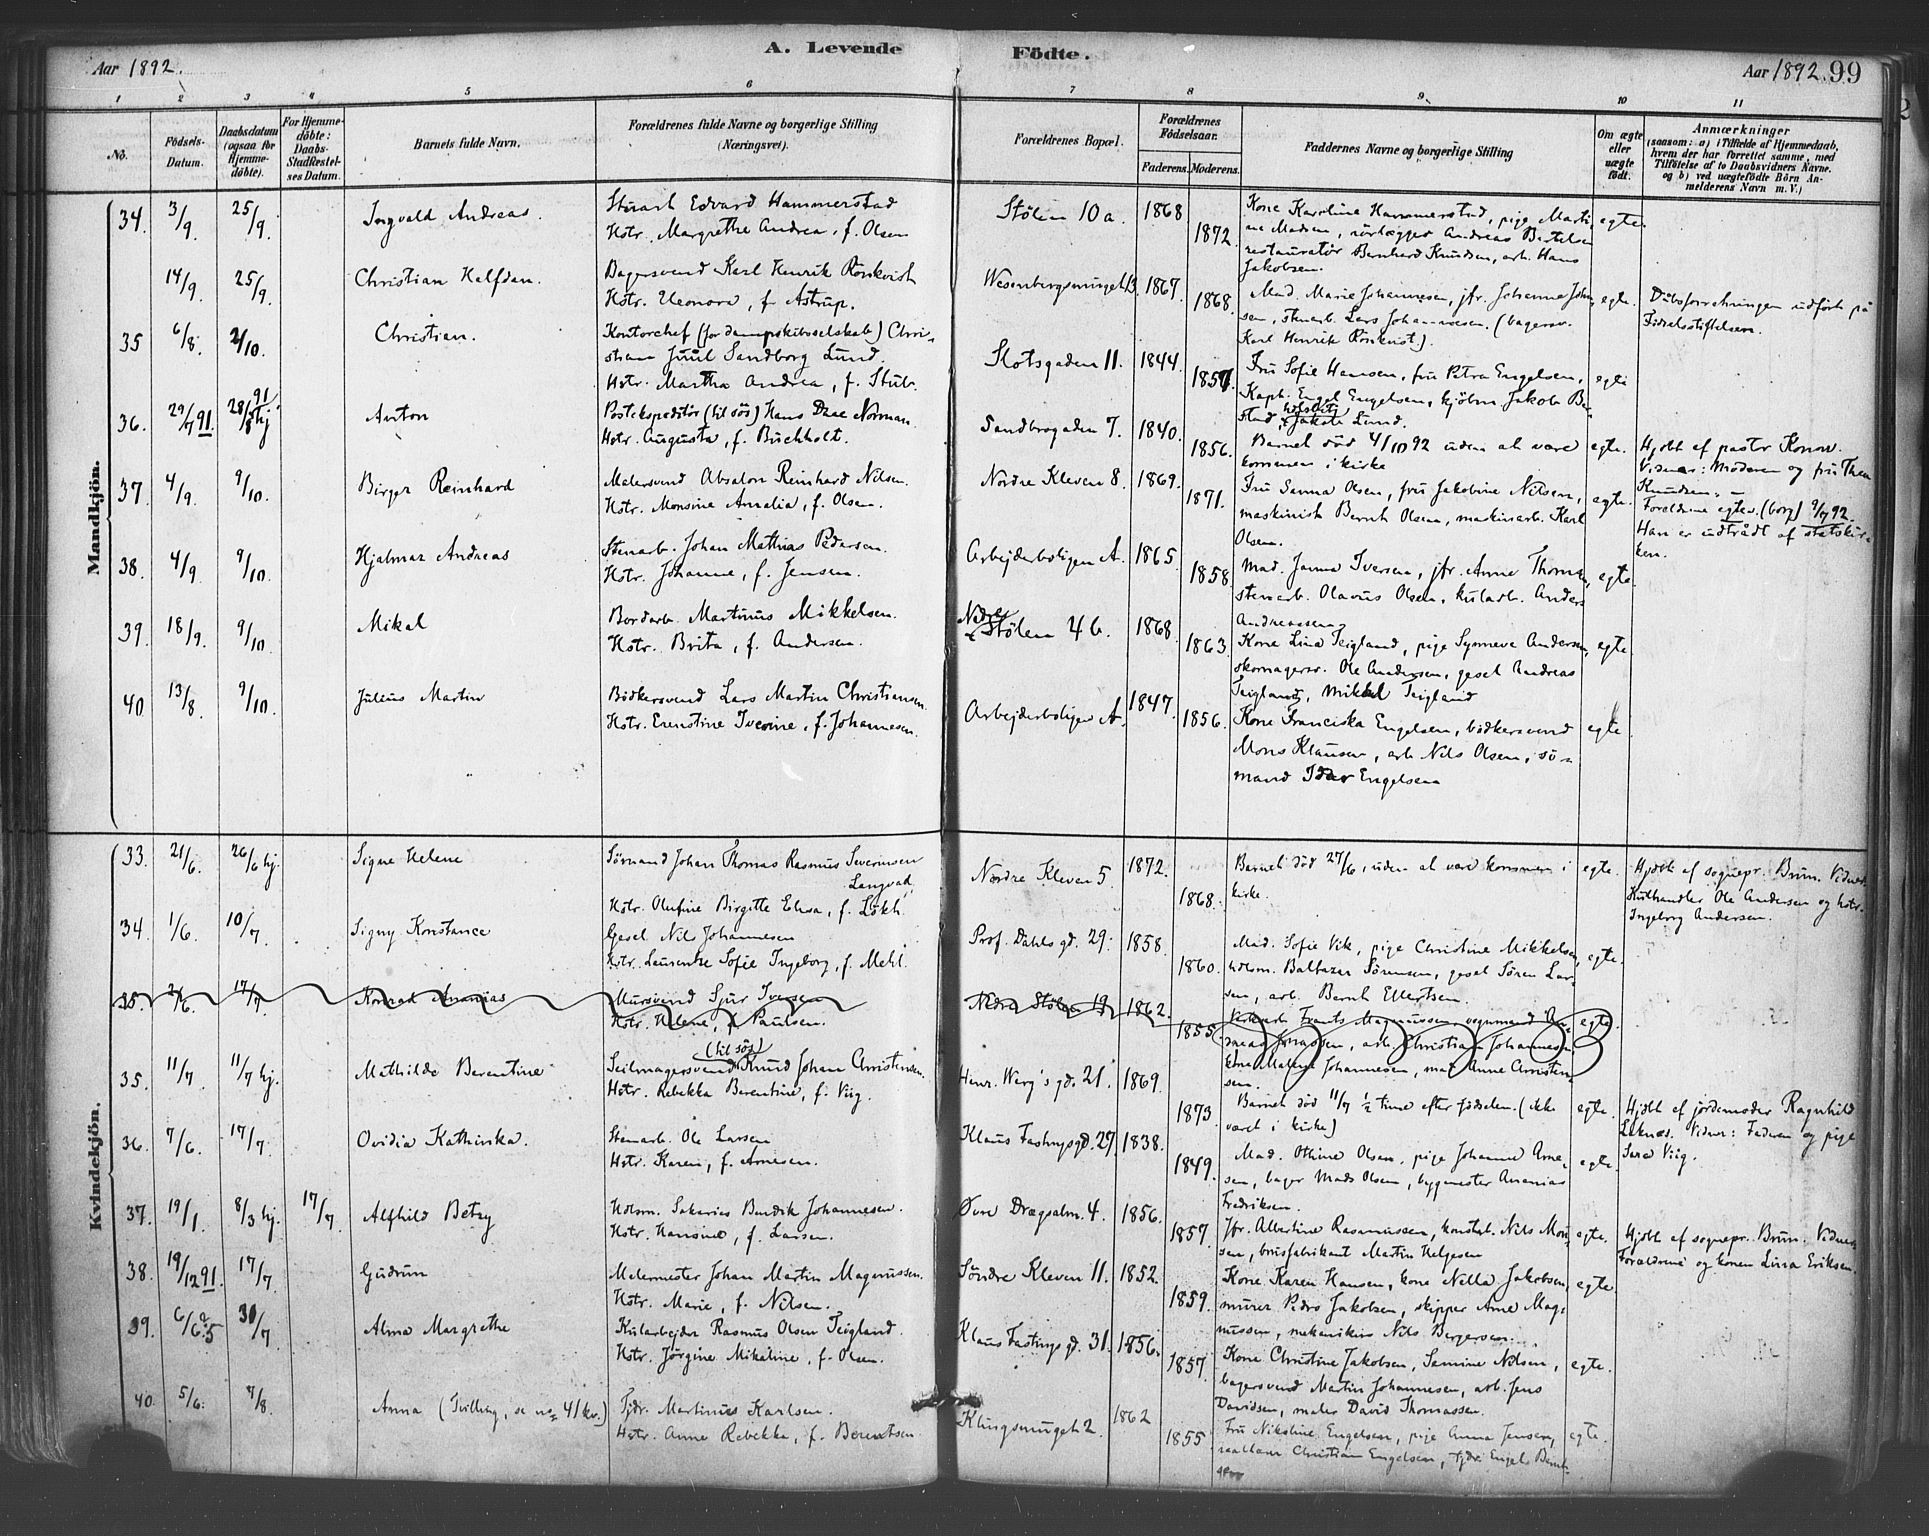 A. Levende Födte.
Aar 1892.
Aar 1892. 99
1 2 3 4 5 6 7 8 9 10 11
No.
Födsels-Datum.
Daabsdatum (ogsaa for Hjemme-döbte).
For Hjemme-döbte: Daabs-Stadfæstel-ses Datum.
Barnets fulde Navn.
Forældrenes fulde Navne og borgerlige Stilling (Næringsvei).
Forældrenes Bopæl.
Forældrenes Födselsaar.
Faderens. Moderens.
Faddernes Navne og borgerlige Stilling
Om ægte eller uægte födt.
Anmærkninger
(saasom: a) i Tilfælde af Hjemmedaab,
hvem der har forrettet samme, med
Tilföielse af to Daabsvidners Navne.
og b) ved uægtefödte Börn An-
melderens Navn m. V.)
Mandkjön.
34. 3/9. 25/9. Ingvald Andreas. Stuart Edvard Hammerstad
Hstr. Margrethe Andrea, f. Olsen
Stölen 10a. 1868 1872.
Kone Karoline Hammerstad, pige Marti-
ne Madsen, rörlægger Andreas Bertelsen
restauratör Bernhard Knudsen, arb. Hans
Jakobsen.
egte.
14/9. 25/9. Christian Halfdan. Bagersvend Karl Henrik Rönkvist
Hstr. Eleonora, f. Astrup.
Wesenbergsmuget 13. 1867. 1868.
Mad. Marie Johannesen, jfr. Johanne John-
sen, stenarb. Lars Johannesen. (bagersv.
Karl Henrik Rönkvist).
egte.
Dåbsforretningen udfört på
Födselsstiftelsen.
35 6/8. 2/10. Christian. Kontorchef (for dampskibsselskab) Chri-
stian Juul Sandborg Lund.
Hstr. Martha Andrea, f. Stub.
Slotsgaden 11. 1844. 1857.
Fru Sofie Hansen, fru Petra Engelsen,
Kapt. Engel Engelsen, kjöbm. Jakob Ber-
stad, Jakob Lund.
egte
36. 29/7 91. 28/8 91 hj. Anton Postekspeditör (til sös) Hans Daae Norman.
Hstr. Augusta, f. Buchholt.
Sandbrogaden 7. 1840. 1856.
Barnet död 4/10 92 uden at være
kommen i kirke
egte.
Hjdbt af pastor Konow.
Vidner: Moderen og fru Thea
Knudsen. -
Forældrene egtev. (borg) 9/7 92.
Han er udtrådt af statskir-
ken.
37 4/9. 9/10. Birger Reinhard Malersvend Absalon Reinhard Nilsen.
Hstr. Monsine Amalia, f. Olsen.
Nordre Kleven 8. 1869. 1871.
Fru Sanna Olsen, fru Jakobine Nilsen,
maskinist Bernt Olsen, maskinarb. Karl
Olsen.
egte.
38. 4/9 9/10. Hjalmar Andreas Stenarb. Johan Mathias Pedersen.
Hstr. Johanne, f. Jensen.
Arbejderboligen A. 1865. 1858.
Mad. Janna Iversen, jfr. Anne Thomsen,
stenarb. Olavus Olsen, kularb. Anders
Andreassen
egte.
39. 18/9. 9/10 Mikal Bordarb. Martinus Mikkelsen.
Hstr. Brita, f. Andersen.
Nedre Stölen 4b. 1868. 1863.
Kone Lina Teigland, pige Synneve Andersen,
skomagersv. Ole Andersen, gesel Andreas
Teigland, Mikkel Teigland
egte.
40 13/8. 9/10. Julius Martin Bödkersvend Lars Martin Christiansen.
Hstr. Ernstine Iverine, f. Johannesen.
Arbejderboligen A. 1847. 1856.
Kone Franciska Engelsen, bödkersvend
Mons Klausen, arb Nils Olsen, sö-
mand Engelsen
egte.
Kvindekjön.
33. 21/6. 26/6 hj. Signe Helene Sömand Johan Thomas Rasmus Severinsen
Langvad,
Hstr. Olufine Birgitte Elisa, f. Lökh.
Nordre Kleven 5. 1872. 1868.
Barnet död 27/6, uden at være kommen i
kirke.
egte.
Hjdbt af sognepr. Brun. Vidner:
Kulhandler Ole Andersen og hstr.
Ingeborg Andersen.
34. 1/6. 10/7. Signy Konstance Gesel Nils Johannesen
Hstr. Laurentze Sofie Ingeborg, f. Mehl.
Prof. Dahls gd. 29. 1858 1860.
Mad. Sofie Vik, pige Christine Mikkelsen,
hdlsm. Baltazar Sörensen, gesel Sören Lar-
sen, arb. Bernt Ellertsen.
egte.
35. 2/6. 17/7. Konrad Ananias Mursvend Sjur Iversen
Hstr. Helene, f. Paulsen.
Nedre Stölen 19. 1862. 1855
Frants Magnussen, vognmand An-
Jonassen, arb. Christian Johannesen
Johannesen, mad. Anne Christen-
sen.
egte.
35. 11/7. 11/7 hj. Mathilde Berentine Seilmagersvend (til sös) Knud Johan Christensen.
Hstr. Rebekka Berentine, f. Viig.
Henr. Werg's gd. 21. 1869. 1873.
Barnet död 11/7 1/2 time efter födselen. (ikke
været i kirke)
egte.
Hjdbt af jordemoder Ragnhild
Leknæs. Vidner: Faderen og pige
Sara Viig.
36. 7/6. 17/7. Ovidia Kathinka. Stenarb. Ole Larsen
Hstr. Karen, f. Arnesen.
Klaus Fastingsgd. 27. 1838. 1849.
Mad. Othine Olsen, pige Johanne Arne-
sen, bager Mads Olsen, bygmester Ananias
Fredriksen.
egte.
37. 19/1. 8/3 hj. 17/7. Alfhild Betzy Hdlsm. Sakarias Bendik Johannesen.
Hstr. Hansine, f. Larsen.
Övre Drægsalm. 4. 1856. 1857.
Jfr. Albertine Rasmussen, konstab. Nils Mon-
sen, brusfabrikant Martin Helgesen
egte.
Hjdbt af sognepr. Brun. Vidner:
Forældrene og konen Lina Eriksen.
38. 19/12 91. 17/7. Gudrun Malermester Johan Martin Magnussen.
Hstr. Marie, f. Nilsen.
Söndre Kleven 11. 1852. 1859.
Kone Karen Hansen, kone Nella Jakobsen,
murer Pedro Jakobsen, skipper Arne Mag-
nussen, mekanikus Nils Børgersen.
egte
39. 6/6 31/7. Alma Margrethe Kularbejder Rasmus Olsen Teigland.
Hstr. Jörgine Mikaline, f. Olsen.
Klaus Fastings gd. 31. 1856. 1857.
Kone Christine Jakobsen, Samine Nilsen,
bagersvend Martin Johannesen, arb. Jens
Davidsen, maler David Thomassen.
egte.
40. 5/6. 7/8. Anna (Tvilling, se no. 41 kv.) Fjdr. Martinus Karlsen.
Hstr. Anne Rebekka, f. Berentsen
Klingsmuget 2. 1862 1855
Fru Nikoline Engelsen, pige Anna Jensen,
Christian Engelsen, fjdr. Engel Bernt-
sen
egte.